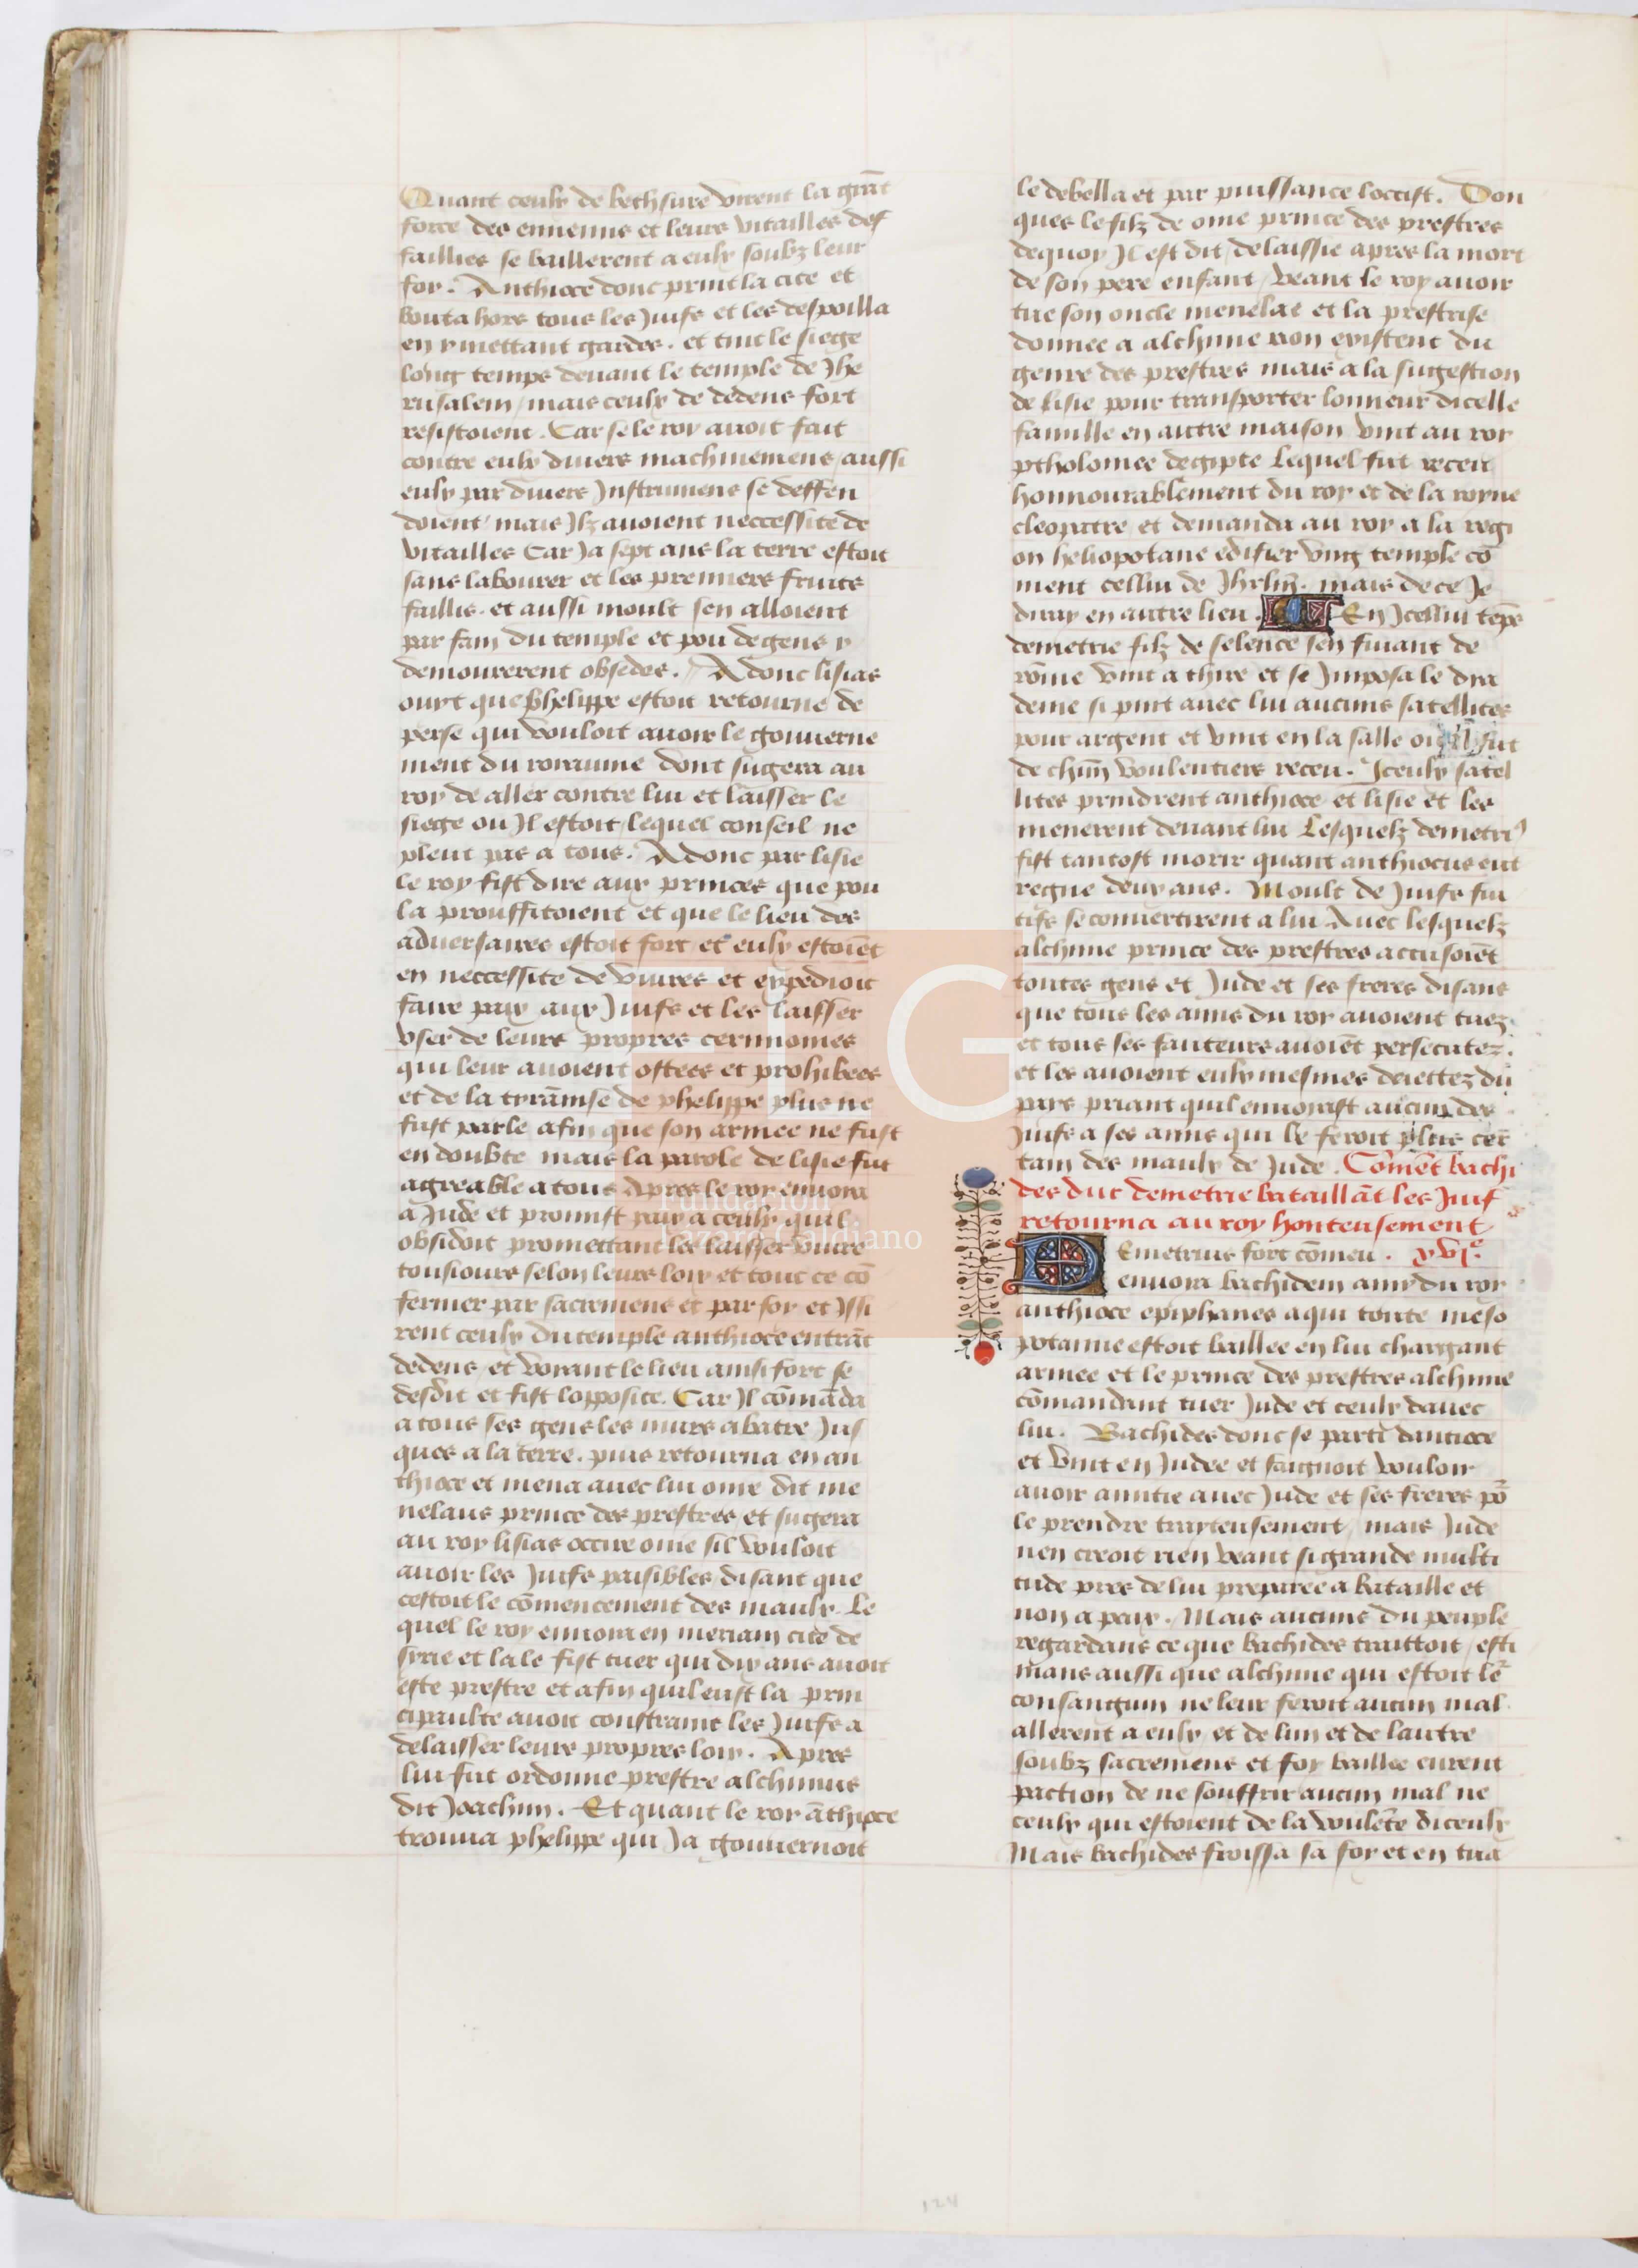 Quant ceulx de bethsure virent la grãt
force des ennemis et leurs vitailles def
faillies se baillerent a eulx soubz leur
foy. Anthioce donc print la cite et
bouta hors tous les Juifs et les despoilla
en y mettant gardes. et tint le siege
long temps deuant le temple de Jhe
rusalem / mais ceulx de dedens fort
resistoient. Car se le roy auoit fait
contre eulx diuers machinemens / aussi
eulx par diuers Instrumens se deffen
doient / mais Ilz auoient neccessite de
vitailles Car Ja sept ans la terre estoit
sans labourer et les premiers fruits
faillis. et aussi moult sen alloient
par fain du temple et pou de gens y
demourerent obsedes. // Adonc lisias
ouyt que phelippe estoit retourne de
perse qui vouloit auoir le gouuerne
ment du royaume dont sugera au
roy de aller contre lui et laisser le
siege ou Il estoit / lequel conseil ne
pleut pas a tous. Adonc par lisie
le roy fist dire aux princes que pou
la prouffitoient et que le lieu des
aduersaires estoit fort et eulx estoiẽt
en neccessite de viures et expedioit
faire paix aux Juifs et les laisser
vser de leurs propres cerimonies
qui leur auoient ostees et prohibees
et de la tyrãnise de phelippe plus ne
fust parle afin que son armee ne fust
en doubte mais la parole de lisie fut
agreable a tous Apres le roy enuoia
a Jude et promist paix a ceulx quil
obsidoit promettant les laisser viure
tousiours selon leurs loix et tout ce cõ
fermer par sacremens et par foy et Issi
rent ceulx du temple anthioce entrãt
dedens / et voiant le lieu ainsi fort se
desdit et fist lopposite. Car Il cõmãda
a tous ses gens les murs abatre Jus
ques a la terre. puis retourna en an
thioce et mena auec lui onie dit me
nelaus prince des prestres / et sugera
au roy lisias occire onie sil vouloit
auoir les Juifs paisibles / disant que
cestoit le cõmencement des maulx. Le
quel le roy enuoia en meriam cite de
syrie et la le fist tuer qui dix ans auoit
este prestre et afin quil eust la prin
cipaulte auoit constraint les Juifs a
delaisser leurs propres loix. Apres
lui fut ordonne prestre alchimus
dit Joachim. Et quant le roy ãthioce
trouua phelippe qui Ja gouuernoit
le debella et par puissance loccist. Don
ques le filz de onie prince des prestres
dequoy Il est dit / delaissie apres la mort
de son pere enfant / veant le roy auoir
tue son oncle menelae et la prestrise
donnee a alchime non existent du
genre des prestres mais a la sugestion
de lisie pour transporter lonneur dicelle
famille en autre maison vint au roy
ptholomee degipte Lequel fut receu
honnourablement du roy et de la royne
cleopatre et demanda au roy a la regi
on heliopotane edifier vng temple cõ
ment cellui de Jhrlm. mais de ce Je
diray en autre lieu. En Icellui tẽps
demetrie filz de seleuce sen fuiant de
rõme vint a thire et se Imposa le dia
deme si print auec lui aucuns satellites
pour argent et vint en la salle ou Il fut
de chũn voulentiers receu. Iceulx satel
lites prindrent anthioce et lisie et les
menerent deuant lui Lesquelz demetri9
fist tantost morir quant anthiocus eut
regne deux ans. Moult de Juifs fui
tifs se conuertirent a lui Auec lesquelz
alchime prince des prestres accusoiẽt
toutes gens et Jude et ses freres disans
que tous les amis du roy auoient tuez.
et tous ses fauteurs auoiẽt persecutez.
et les auoient eulx mesmes deiettez du
pays priant quil enuoyast aucun des
Juifs a ses amis qui le feroit plus cer
tain des maulx de Jude. Cõmẽt bachi
des duc demetrie bataillãt les Juifs
retourna au roy honteusement
Demetrius fort cõmeu. xvi.e
enuoia bachidem amy du roy
anthioce epiphanes a qui toute meso
potamie estoit baillee en lui chargant
armee et le prince des prestres alchime
cõmandant tuer Jude et ceulx dauec
lui. Bachides donc se parti dantioce
et vint en Judee et faignoit vouloir
auoir amitie auec Jude et ses freres po9
le prendre traytreusement / mais Jude
nen creoit rien veant si grande multi
tude pres de lui preparee a bataille et
non a paix. Mais aucuns du peuple
regardans ce que bachides traittoit / esti
mans aussi que alchime qui estoit le9
consanguin ne leur feroit aucun mal
allerent a eulx et de lun et de lautre
soubz sacremens et foy baillee eurent
paction de ne souffrir aucun mal ne
ceulx qui estoient de la voulẽte diceulx
Mais bachides froissa sa foy et en tua
FLG
Fundación
Lázaro Galdiano
124